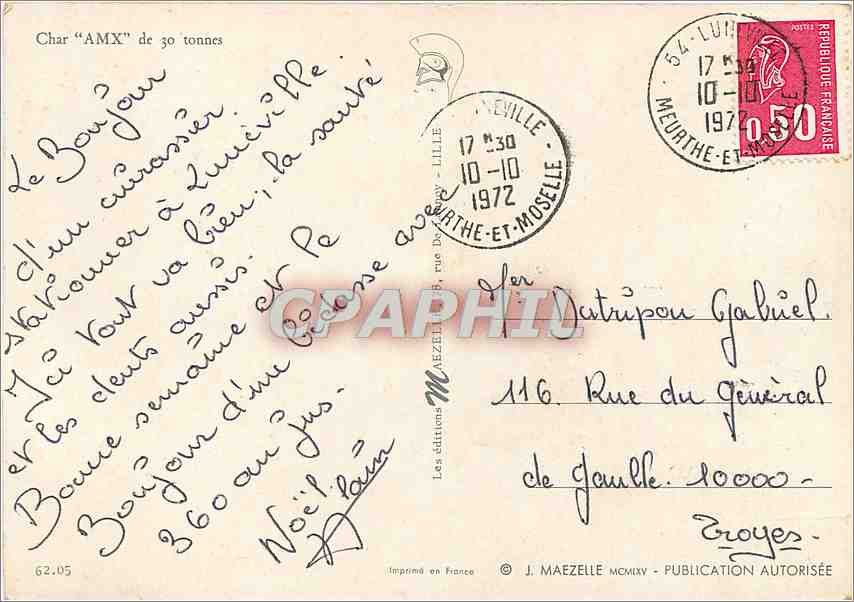 Char "AMX" de 30 tonnes
Le Bonjour
d'un cuirassier
stationner à Lunéville.
Ici tout va bien, la santé
et les dents aussis.
Bonne semaine et le
Bonjour d'une bidasse avec
360 au jus.
Noël
Alain
NEVILLE -
17 H 30
10-10
1972
URTHE-ET-MOSELLE
54-LUNEVILLE
17 H 30
10-10
1972
MEURTHE-ET-MOSELLE
POSTES
REPUBLIQUE FRANÇAISE
0,50
CPARAMA
CPAPHIL
Mer Dutripon Gabriel.
116. Rue du Général
de Gaulle. 10000-
Troyes-
Les éditions MAEZELLE, rue De - LILLE
62.05
Imprimé en France
© J. MAEZELLE MCMLXV - PUBLICATION AUTORISÉE